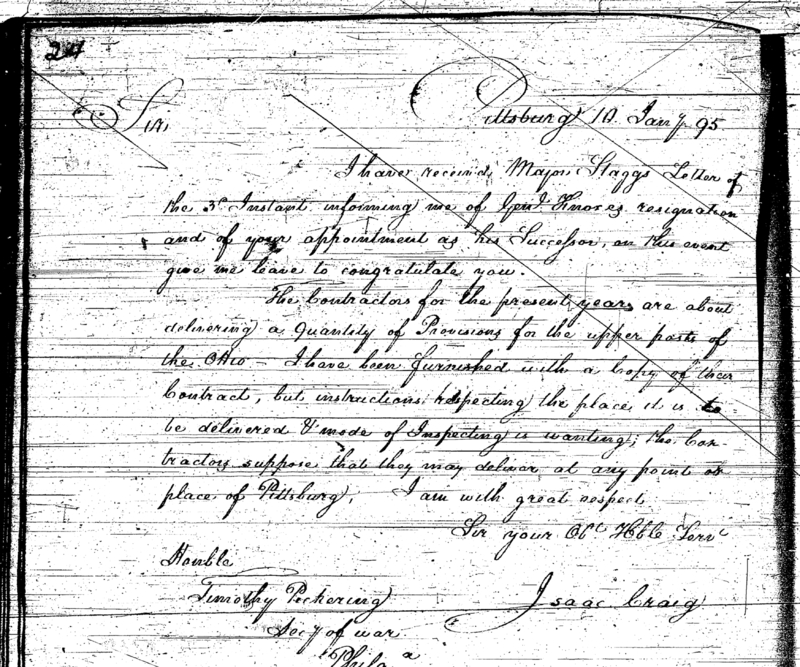 24
Pittsburg 10 Jany 95
Sir,
I have received Major Staggs Letter of
the 3d Instant informing me of Genl Knoxes resignation
and of your appointment as his Successor, on this event
give me leave to congratulate you.
The Contractors for the present years are about
delivering a Quantity of Provisions for the upper posts of
the Ohio — I have been furnished with a Copy of their
Contract, but instructions respecting the place it is to
be delivered & mode of Inspecting is wanting; the Con-
tractors suppose that they may deliver at any point or
place of Pittsburg, I am with great respect
Sir your Obt Hble Servt
Honble
Timothy Pickering
Isaac Craig
Secy of war
Phila